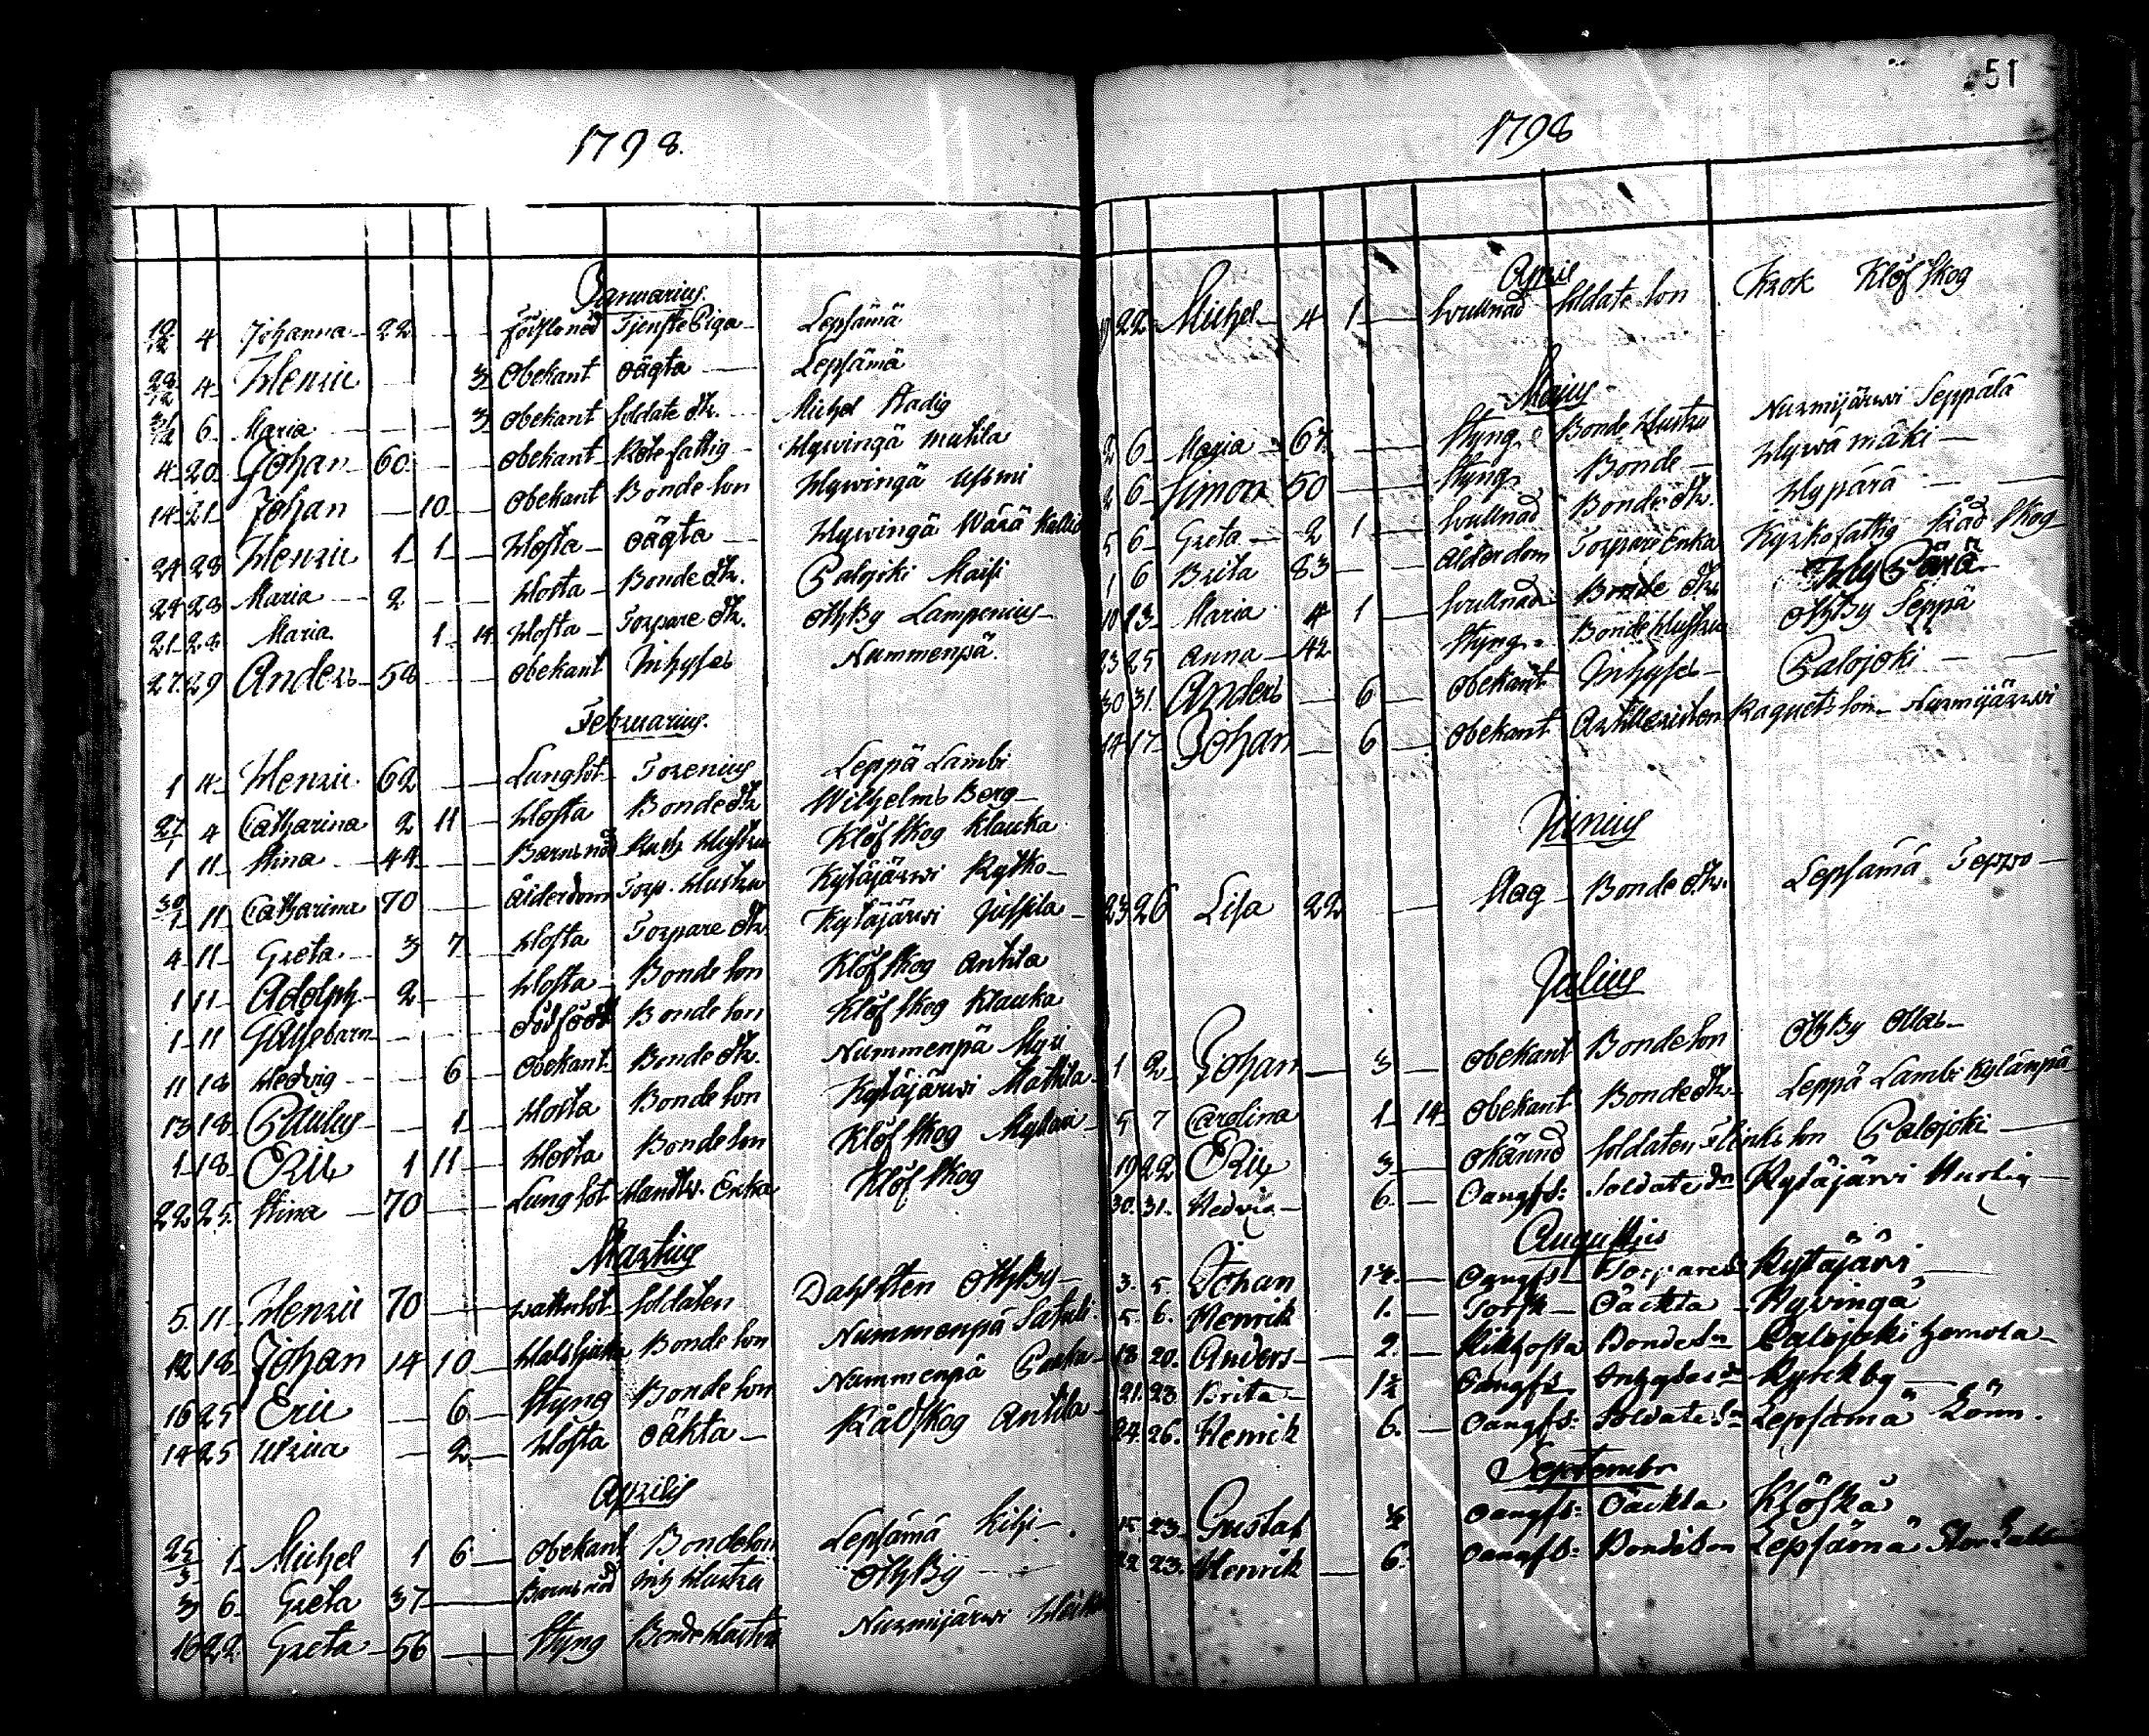 1798.
Januarius.
19/12 4 Johanna 22 Förstoned Tjenste Piga Lepsämä
28/12 4 Henric 3 Obekant Oägta Lepsämä
31/12 6 Maria 3 Obekant Soldate dtr. Michel Stadig
4 20 Johan 60 Obekant Rotefattig Hywingä Mutila
14 21 Johan 10 Obekant Bonde Son Hywingä Ussmi
24 28 Henric 1 1 Hosta Oägta Hywingä Wärä Kallio
24 28 Maria 2 Hosta Bonde dtr. Palojoki Maisi
21 28 Maria 1 14 Hosta Torpare dtr. OthBy Lampenius
27. 29 Anders 58 Obekant Inhyses Nummenpä.
Februarius.
1 4 Henric 62 Lungsot Torenius Leppä Lambi
27/1 4 Catharina 2 11 Hosta Bonde dtr Wilhelms Berg
1 11 Stina 44 Barnsnöd Hustru Klöf Skog Klauka
30/1 11 Catharina 70 Ålderdom Torp. Hustru Kytäjärwi Rytko
4 11 Greta 3 7 Hosta Torpare dtr Kytäjärwi Jussila
1 11 Adolph 2 Hosta Bonde Son Klöf Skog Antila
1 11 Gåssebarn dödfödt Bonde Son Klöf Skog Klauka
11 18 Hedvig 6 Obekant Bonde dtr. Nummenpä Myri
13 18 Paulus 1 Hosta Bonde Son Kytäjärwi Mattila
1 18 Eric 1 11 Hosta Bonde Son Klöf Skog Myllari
22 25. Stina 70 Lungsot Enka Klöf Skog
Martius
5 11 Henric 70 Wattusot Soldaten Dahlsten OthBy
12 18 Johan 14 10 Halssjuka Bonde Son Nummenpä Satuli
16 25 Eric 6 Styng Bonde Son Nummenpä
14 25 Ulrica 2 Hosta Oäkta Råldskog Antila
Aprilis
25/3 1 Michel 1 6 Obekant Bondeson Lepsämä Kihi
3 6 Greta 37 Barnsnöd Inh Hustru OthBy
16 22 Greta 56 Styng Bonde Hustru Nurmijärwi
51
1798
April
22 Michel 4 1 Svullnad Soldate Son Krok Klöf Skog
Majus
2 6 Maria 67 Styng Bonde Hustru Nurmijärwi Seppälä
2 6 Simon 50 Styng Bonde Hywämäki
5 6 Greta 2 1 Svullnad Bonde dtr. Hypärä
1 6 Brita 83 Ålderdom Torpare Enka Kyrkofattig Råd Skog
10 13 Maria 4 1 Svullnad Bonde dtr HyPärä
23 25 Anna 42 Styng Bonde Hustru OthBy Seppä
30 31. Anders 6 Obekant Inhyses Palojoki
14 17 Johan 6 Obekant Artilleristen Raquets Son Nurmijärwi
Junius
23 26 Lisa 22 Slag Bonde dtr. Lepsämä Tepzo
Julius
1 2 Johan 3 Obekant Bonde Son OthBy Ollas
5 7 Carolina 1 14 Obekant Bonde dtr Leppä Lambi Kylänpä
19 22 Eric 3 Okännd Soldaten Flinks Son Palojoki
30. 31. Hedvig 6. Oangfs: Soldate dr Kytäjärvi
Augustus
3. 5. Johan 1 1/2 Oangfs Torpares Kytäjärvi
5. 6. Henrik 1. Torsk Oäckta Hyvingä
18 20. Anders 2. Kikhosta Bondes Palojoki Jemola
21. 23. Brita 1 1/2 Oangfs Inhyses Kyrckby
24. 26. Henrik 6. Oangfs: Soldate Sn Lepsämä Lönn.
Septembr
15. 23. Gustaf 1/2 Oangfs: Oäckta Klöfskå
22 23. Henrik 6. Oangfs: Bondeson Lepsämä